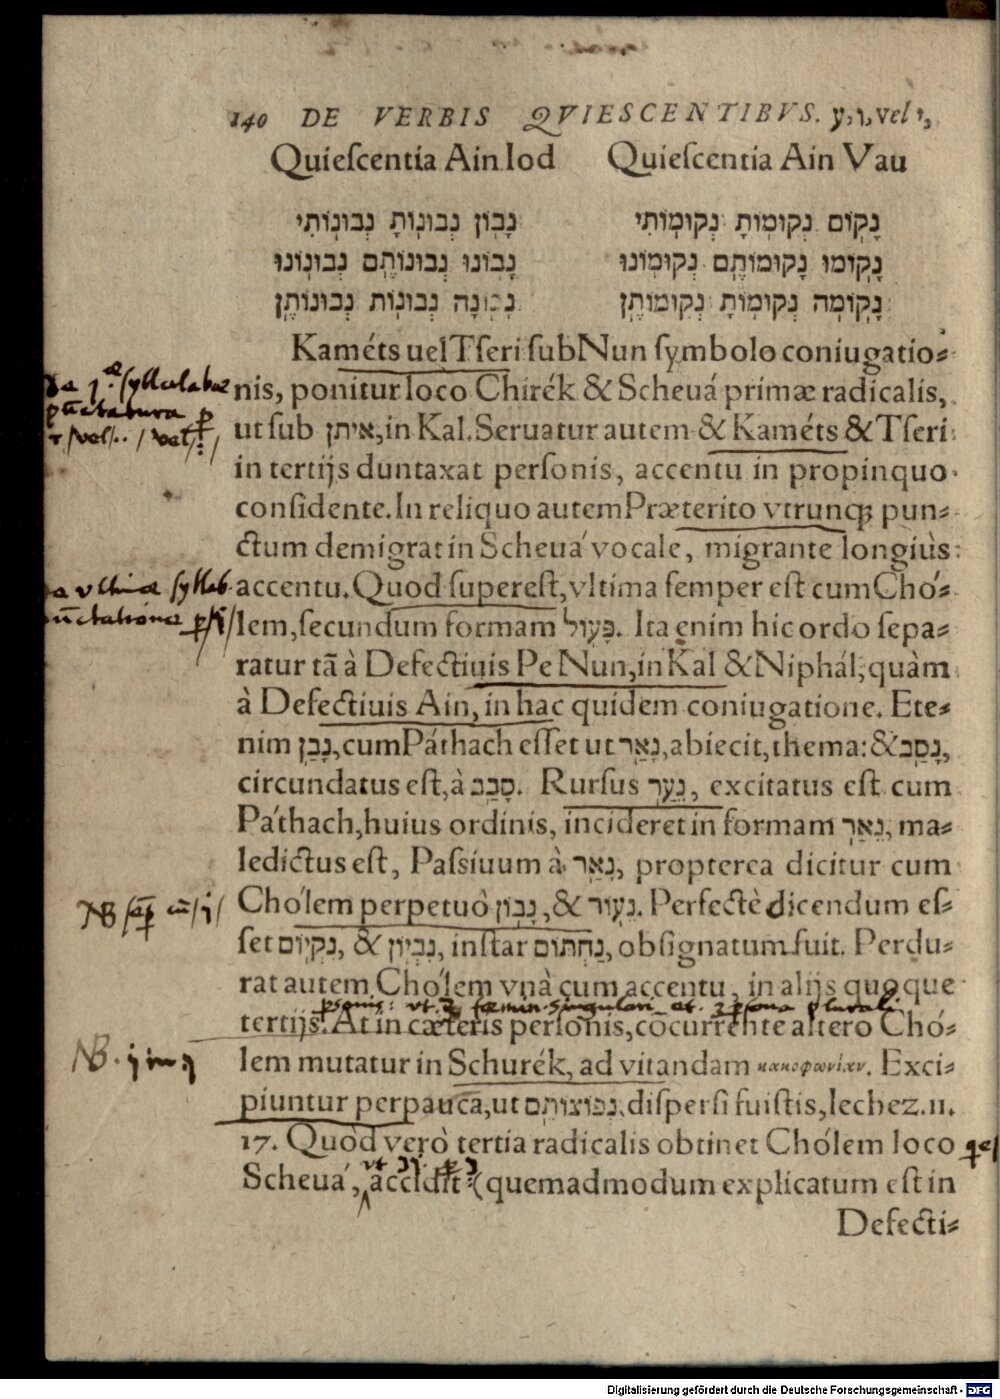 140 DE VERBIS QVIESCENTIBVS. y,ו,vel י,
Quiescentia Ain Iod Quiescentia Ain Vau
נָבוֹן נְבוּנוֹתָ נְבוּנוֹתִי נָקוֹם נְקוּמוֹתָ נְקוּמוֹתִי
נָבוֹנוּ נְבוּנוֹתֶם נְבוּנוֹנוּ נָקוֹמוּ נְקוּמוֹתֶם נְקוּמוֹנוּ
נָבוֹנָה נְבוּנוֹת נְבוּנוֹתֶן נָקוֹמָה נְקוּמוֹתָ נְקוּמוֹתֶן
Kaméts uel Tseri sub Nun symbolo coniugatio⸗
nis, ponitur loco Chirék & Scheuá primæ radicalis,
ut sub איתן, in Kal. Seruatur autem & Kaméts & Tseri
in tertijs duntaxat personis, accentu in propinquo
considente. In reliquo autem Præterito vtrunq; pun⸗
ctum demigrat in Scheuá vocale, migrante longiùs
accentu. Quod superest, vltima semper est cum Chó⸗
lem, secundum formam פָּעוֹל. Ita enim hic ordo sepa⸗
ratur tā à Defectiuis Pe Nun, in Kal & Niphál, quàm
à Defectiuis Ain, in hac quidem coniugatione. Ete⸗
nim נָבַן, cum Páthach esset ut נָאַר, abiecit, thema: & נָסַב,
circundatus est, à סָבַב. Rursus נֵעַר, excitatus est cum
Páthach, huius ordinis, incideret in formam נֵאַר, ma⸗
ledictus est, Passiuum à נָאַר, propterea dicitur cum
Chólem perpetuò נָבוֹן, & נֵעוֹר. Perfectè dicendum es⸗
set נִקְיוֹם, & נִבְיוֹן, instar נַחְתּוֹם, obsignatum fuit. Perdu⸗
rat autem Chólem vnà cum accentu, in alijs quoque
psonis: vt 3 fœmin. singulari et 3 psona plurali
tertijs. At in cæteris personis, cōcurrente altero Chó⸗
lem mutatur in Schurék, ad vitandam κακοφωνίαν. Exci⸗
piuntur perpauca, ut נְפוֹצוֹתֶם, dispersi fuistis, Iechez. 11.
17. Quòd verò tertia radicalis obtinet Chólem loco
Scheuá, accidit (quemadmodum explicatum est in
Defecti⸗
NB
NB.
Digitalisierung gefördert durch die Deutsche Forschungsgemeinschaft - DFG